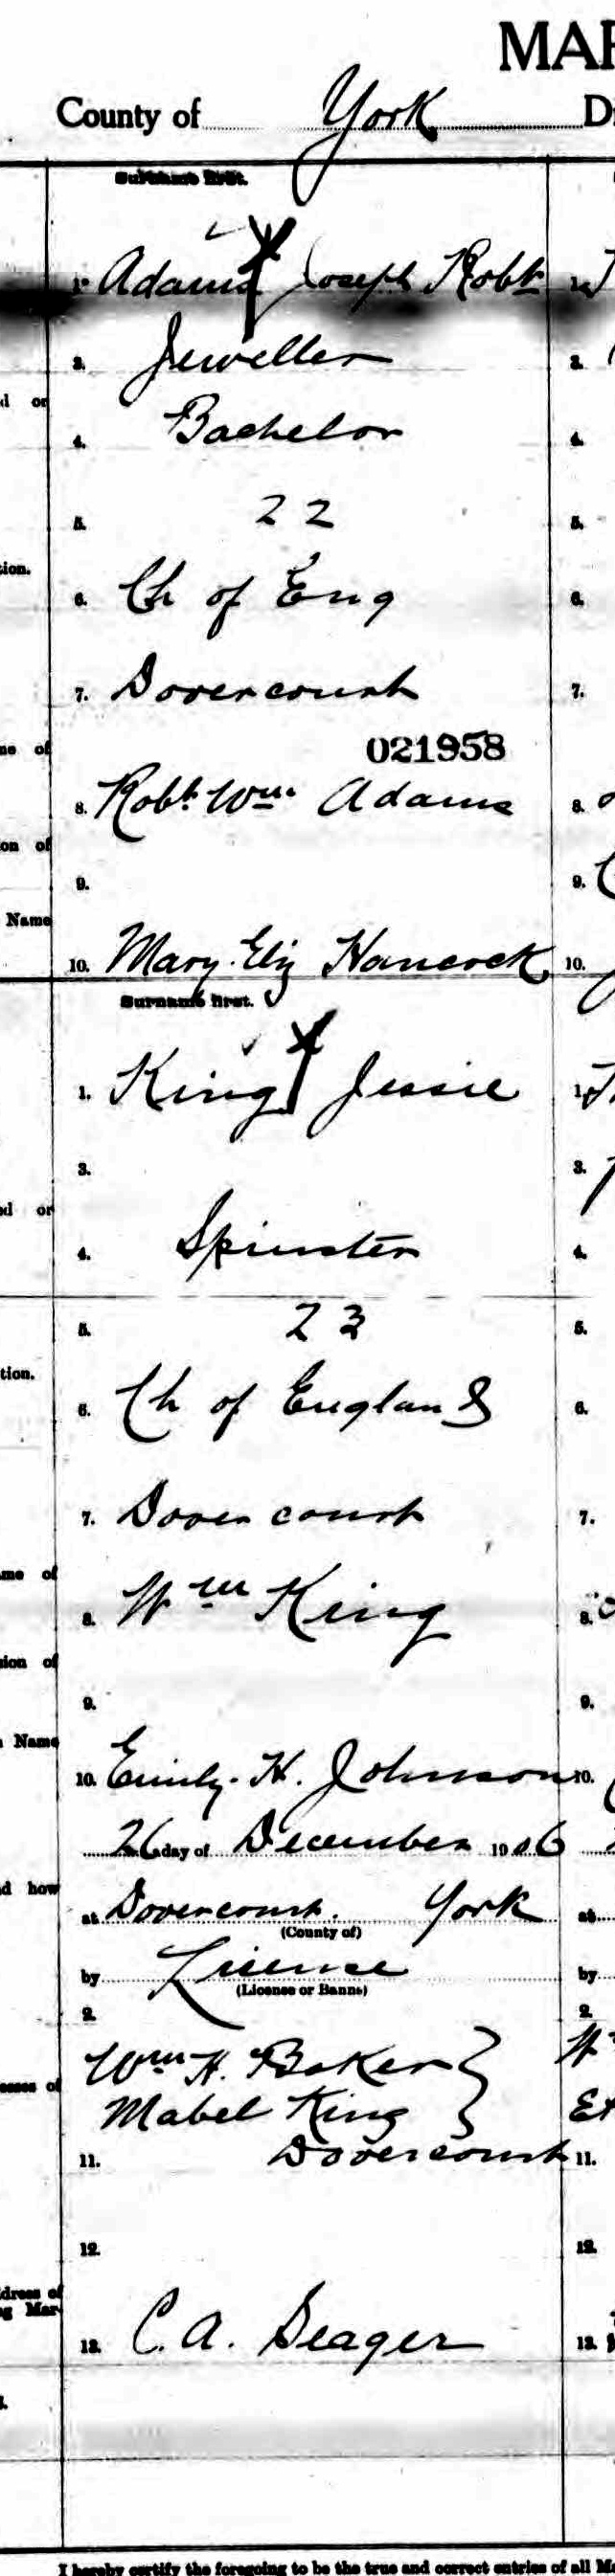 MAR
County of York
Surname first.
1. Adams Joseph Robt
3. Jeweller
4. Bachelor
5. 22
6. Ch of Eng
7. Dovercourt
021958
8. Robt. Wm. Adams
9.
10. Mary. Eliz Hancock
Surname first.
1. King Jessie
3.
4. Spinster
5. 23
6. Ch of England
7. Dovercourt
8. Wm King
9.
10. Emily. H. Johnson
26 day of December 1906
at Dovercourt. York
(County of)
by License
(License or Banns)
2.
Wm H. Baker
Mabel King
11. Dovercourt
12.
13. C. A. Seager
I hereby certify the foregoing to be the true and correct entries of all M